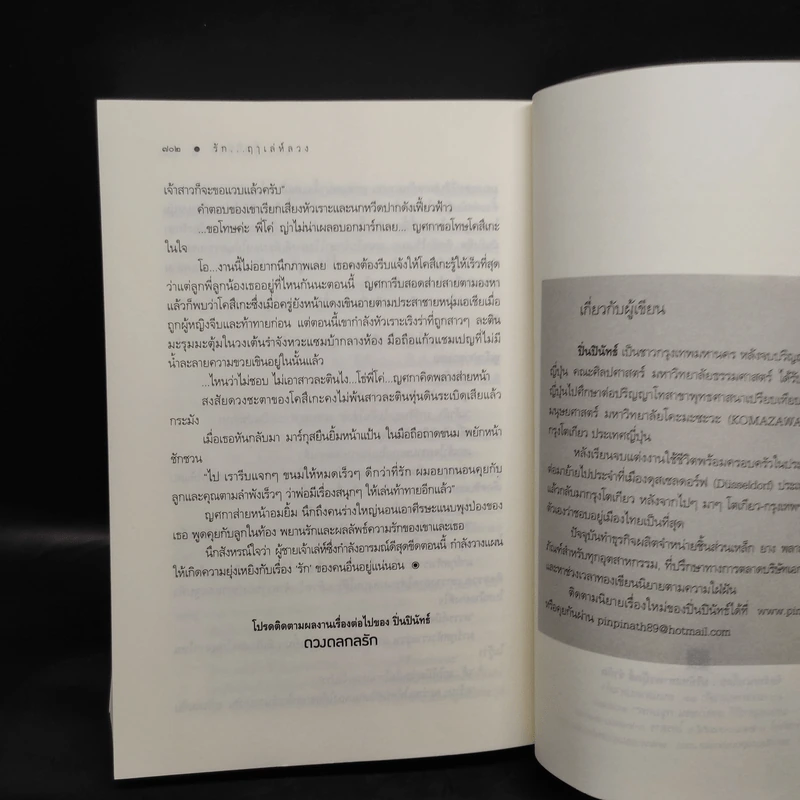 ๗๐๒ ● รัก...ฤๅเล่ห์ลวง
เจ้าสาวก็จะขอแวบแล้วครับ”
คำตอบของเขาเรียกเสียงหัวเราะและนกหวีดปากดังเฟี้ยวฟ้าว
...ขอโทษค่ะ พี่โค่ ญ่าไม่น่าเผลอบอกมาร์กเลย... ญศกาขอโทษโคสึเกะ
ในใจ
โอ...งานนี้ไม่อยากนึกภาพเลย เธอคงต้องรีบแจ้งให้โคสึเกะรู้ให้เร็วที่สุด
ว่าแต่ลูกพี่ลูกน้องเธออยู่ที่ไหนกันนะตอนนี้ ญศการีบสอดส่ายสายตามองหา
แล้วก็พบว่าโคสึเกะซึ่งเมื่อครู่ยังหน้าแดงเขินอายตามประสาชายหนุ่มเอเชียเมื่อ
ถูกผู้หญิงจีบและท้าทายก่อน แต่ตอนนี้เขากำลังหัวเราะเริงร่าที่ถูกสาวๆ ละติน
มะรุมมะตุ้มในวงเต้นรำจังหวะแซมบ้ากลางห้อง มือถือแก้วแชมเปญที่ไม่มี
น้ำละลายความขวยเขินอยู่ในนั้นแล้ว
...ไหนว่าไม่ชอบ ไม่เอาสาวละตินไง...โธ่พี่โค่...ญศกาคิดพลางส่ายหน้า
สงสัยดวงชะตาของโคสึเกะคงไม่พ้นสาวละตินหุ่นดินระเบิดเสียแล้ว
กระมัง
เมื่อเธอหันกลับมา มาร์กุสยืนยิ้มหน้าแป้น ในมือถือถาดขนม พยักหน้า
ชักชวน
“ไป เรารีบแจกๆ ขนมให้หมดเร็วๆ ดีกว่าที่รัก ผมอยากนอนคุยกับ
ลูกและคุณตามลำพังเร็วๆ ว่าพ่อมีเรื่องสนุกๆ ให้เล่นท้าทายอีกแล้ว”
ญศกาส่ายหน้าอมยิ้ม นึกถึงคนร่างใหญ่นอนเอาศีรษะแนบพุงป่องของ
เธอ พูดคุยกับลูกในท้อง พยานรักและผลลัพธ์ความรักของเขาและเธอ
นึกสังหรณ์ใจว่า ผู้ชายเจ้าเล่ห์ซึ่งกำลังอารมณ์ดีสุดขีดตอนนี้ กำลังวางแผน
ให้เกิดความยุ่งเหยิงกับเรื่อง ‘รัก’ ของคนอื่นอยู่แน่นอน ◉
โปรดติดตามผลงานเรื่องต่อไปของ ปิ่นปินัทธ์
ดวงดลกลรัก
เกี่ยวกับผู้เขียน
ปิ่นปินัทธ์ เป็นชาวกรุงเทพมหานคร หลังจบปริญญ
ญี่ปุ่น คณะศิลปศาสตร์ มหาวิทยาลัยธรรมศาสตร์ ได้รับ
ญี่ปุ่นไปศึกษาต่อปริญญาโทสาขาพุทธศาสนาเปรียบเทียบ
มนุษยศาสตร์ มหาวิทยาลัยโคะมะซะวะ (KOMAZAWA
กรุงโตเกียว ประเทศญี่ปุ่น
หลังเรียนจบแต่งงานใช้ชีวิตพร้อมครอบครัวในประ
ต่อมาย้ายไปประจำที่เมืองดุสเซลดอร์ฟ (Düsseldorf) ประเ
แล้วกลับมากรุงโตเกียว หลังจากไปๆ มาๆ โตเกียว-กรุงเทพฯ
ตัวเองว่าชอบอยู่เมืองไทยเป็นที่สุด
ปัจจุบันทำธุรกิจผลิตจำหน่ายชิ้นส่วนเหล็ก ยาง พลา
ภัณฑ์สำหรับทุกอุตสาหกรรม, ที่ปรึกษาทางการตลาดบริษัทเอก
และหาช่วงเวลาทองเขียนนิยายตามความใฝ่ฝัน
ติดตามนิยายเรื่องใหม่ของปิ่นปินัทธ์ได้ที่ www.pin
หรือคุยกันผ่าน pinpinath89@hotmail.com